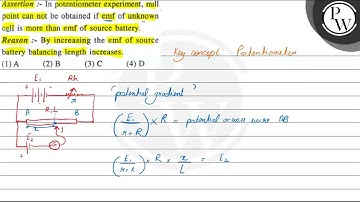 Assertion :- In potentiometer experiment, null
point can not be obtained if emf of unknown
cell is more than emf of source battery.
Reason :- By increasing the emf of source
battery balancing length increases.
(1) A (2) B (3) C (4) D
Key concept Potentiometer
E₁ Rh
"potential gradient"
A R, L B
x
(E₁/r+R) × R = potential across wire AB
E₂
(E₁/r+R) × R × x/L = E₂
PW